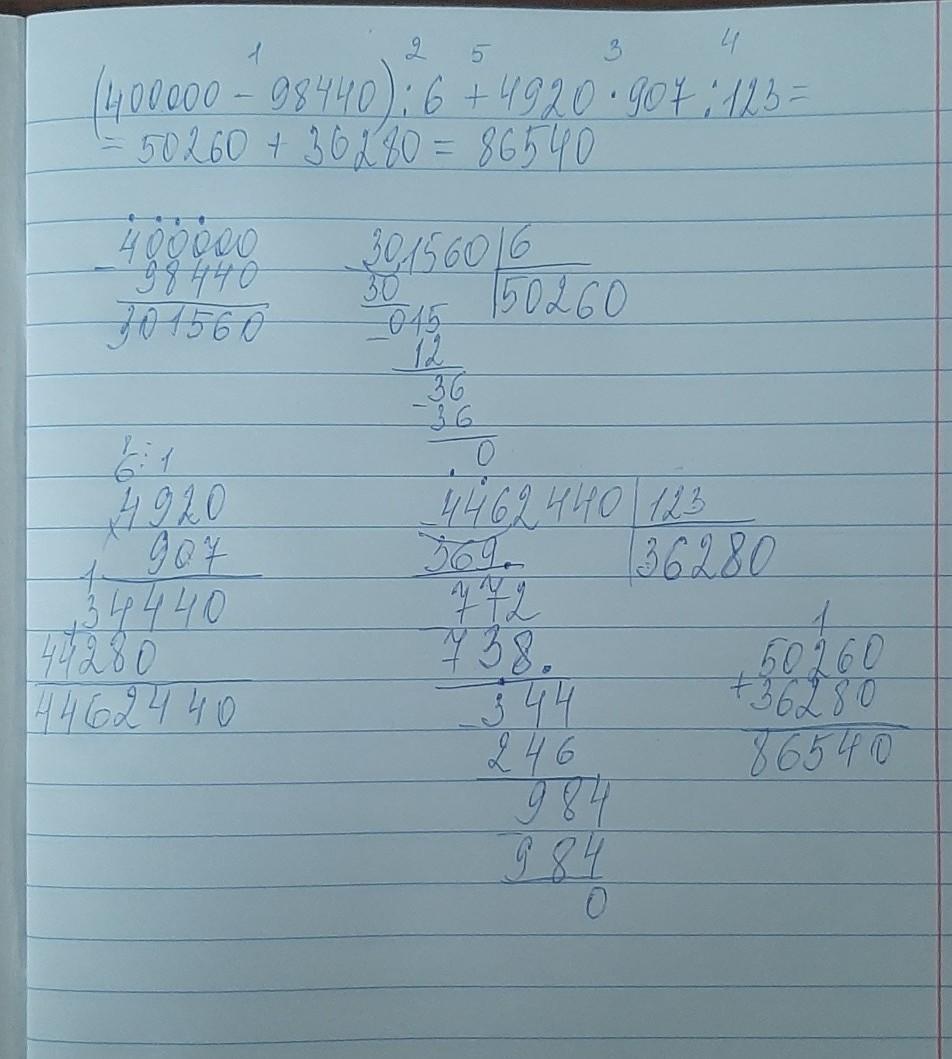 1 2 5 3 4
(400000 - 98440) : 6 + 4920 · 907 : 123 =
= 50260 + 36280 = 86540
400000
- 98440
301560
301560 | 6
30
50260
- 015
12
36
- 36
0
6 1
4920
× 907
1
34440
+
44280
4462440
- 4462440 | 123
369.
36280
772
738.
- 344
246
984
984
0
1
50260
+ 36280
86540